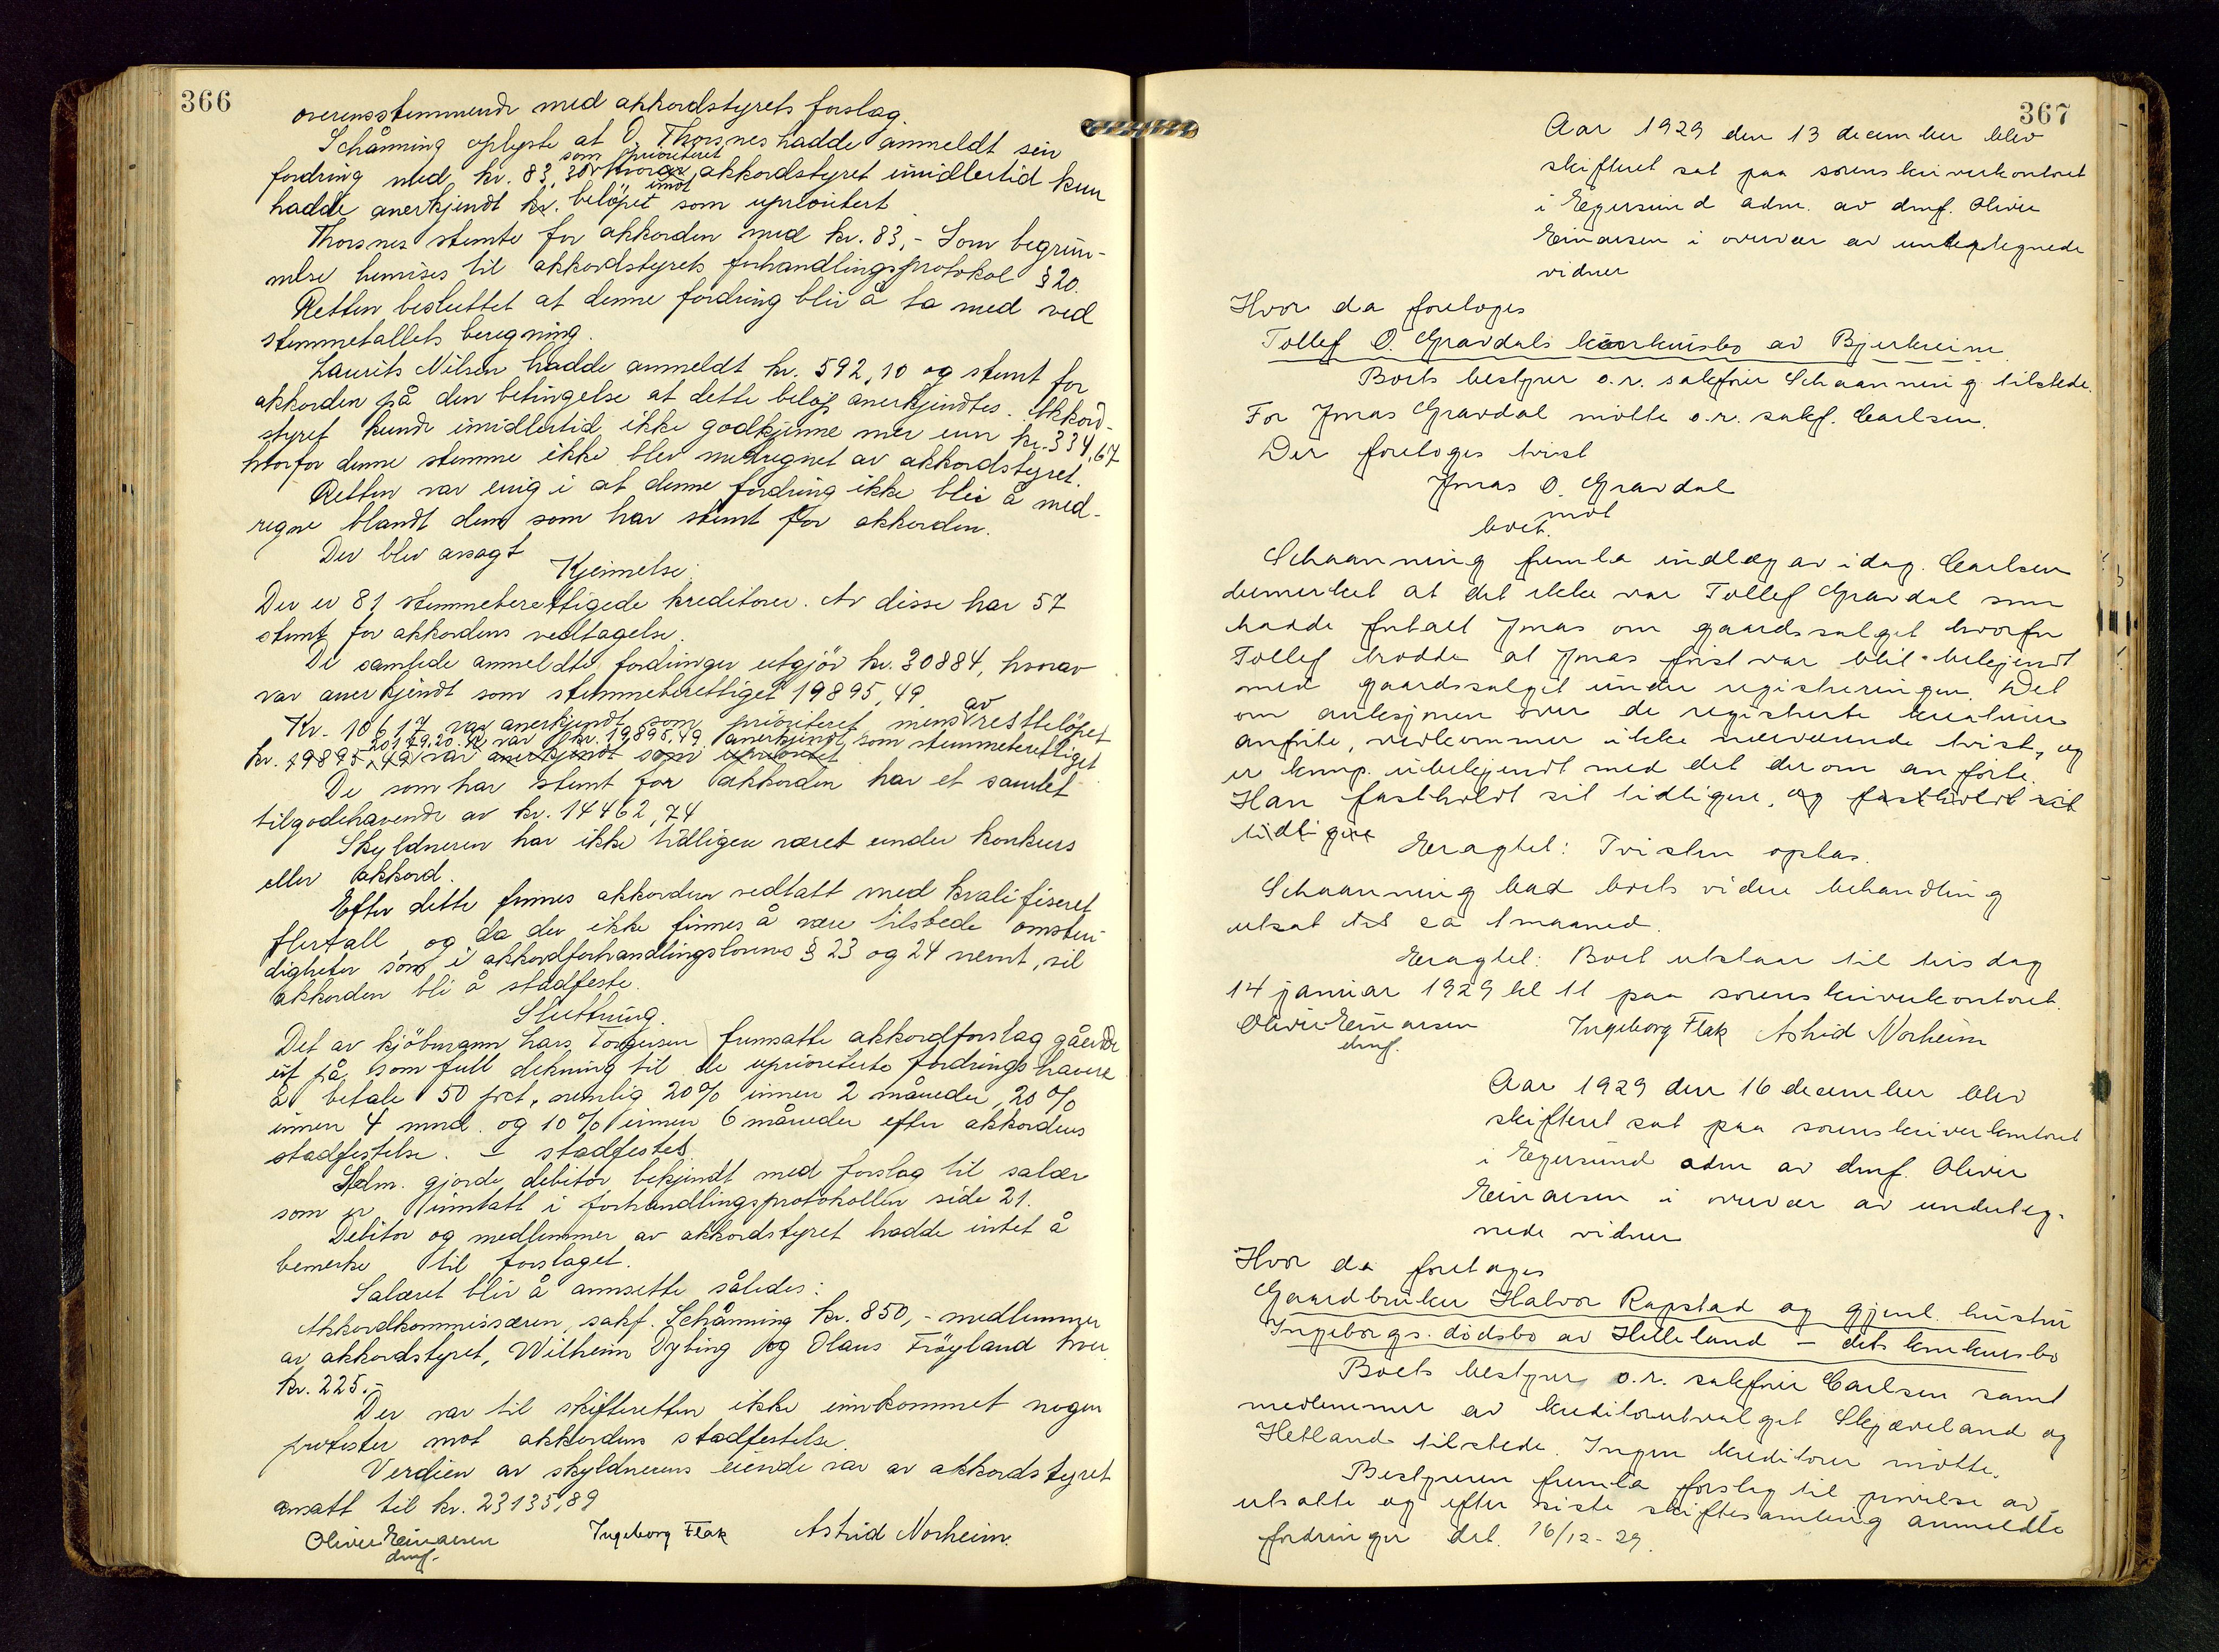 366
overensstemmende med akkordstyrets forslag.
Schånning oplyste at O. Thorsnes hadde anmeldt sin
som prioriteret
fordring med kr. 83,30 hvorav akkordstyret imidlertid kun
imot
hadde anerkjendt kr. beløpet som uprioritert
Thorsnes stemte for akkorden med kr. 83,- Som begrun-
nelse henvises til akkordstyrets forhandlingsprotokol § 20.
Retten besluttet at denne fordring blir å ta med ved
stemmetallets beregning.
Laurits Nilsen hadde anmeldt kr. 592,10 og stemt for
akkorden på den betingelse at dette beløp anerkjendtes. Akkord-
styret kunde imidlertid ikke godkjenne mer enn kr. 334,67
hvorfor denne stemme ikke blev medregnet av akkordstyret.
Retten var enig i at denne fordring ikke blir å med-
regne blandt dem som har stemt for akkorden.
Der blev avsagt
Kjennelse:
Der er 81 stemmeberettigede kreditorer. Av disse har 57
stemt for akkordens vedtagelse.
De samlede anmeldte fordringer utgjör kr. 30884, hvorav
var anerkjendt som stemmeberettiget 19895,49.
av
Kr. 10617 var anerkjendt som prioriteret mens restbelöpet
20179,20. kr. var kr. 19895,49 anerkjendt som stemmeberettiget
kr. 19895,49 var anerkjendt som uprioritet
De som har stemt for akkorden har et samlet
tilgodehavende av kr. 14462,74
Skyldneren har ikke tidligere været under konkurs
eller akkord.
Efter dette finnes akkorden vedtatt med kvalifiseret
flertall, og da der ikke finnes å være tilstede omsten-
digheter som i akkordforhandlingslovens § 23 og 24 nevnt, vil
akkorden bli å stadfeste.
Sluttning.
Det av kjöbmann Lars Torgersen fremsatte akkordforslag gående
ut på som full dekning til de uprioriterte fordringshavere
å betale 50 pct, nemlig 20% innen 2 måneder, 20%
innen 4 mnd. og 10% innen 6 måneder efter akkordens
stadfestelse. - stadfestes.
Adm. gjorde debitor bekjendt med forslag til salær
som er inntatt i forhandlingsprotokollen side 21.
Debitor og medlemmer av akkordstyret hadde intet å
bemerke til forslaget.
Salæret blir å annsette således:
Akkordkommissæren, sakf. Schånning kr. 850,- medlemmer
av akkordstyret, Wilhelm Dybing og Olaus Fröyland hver
kr. 225.-
Der var til skifteretten ikke innkommet nogen
protester mot akkordens stadfestelse.
Verdien av skyldnerens eiende var av akkordstyret
ansatt til kr. 23135,89
Oliver Einarsen Ingeborg Flak Astrid Norheim.
dmf.
367
Aar 1929 den 13 december blev
skifteret sat paa sorenskriverkontoret
i Egersund adm. av dmf. Oliver
Einarsen i overvær av undertegnede
vidner
Hvor da foretoges
Tollef O. Gravdals konkursbo av Bjerkreim.
Boets bestyrer o.r. sakförer Schaanning tilstede.
For Jonas Gravdal mötte o.r. sakf. Carlsen.
Der foretoges tvist
Jonas O. Gravdal
mot
boet.
Schaanning fremla indlæg av idag. Carlsen
bemerket at det ikke var Tollef Gravdal som
hadde fortalt Jonas om gaardssalget hvorfor
Tollef trodde at Jonas först var blit bekjendt
med gaardssalget under registreringen. Det
om auksjonen over de registrerte kreaturer
anförte, vedkommer ikke nærværende tvist, og
er komp. ubekjendt med det derom anförte.
Han fastholdt sit tidligere, og fastholdt sit
tidligere
Eragtet: Tvisten optas.
Schaanning bad boets videre behandling
utsat til ca 1 maaned.
Eragtet: Boet utstaar til tirsdag
14 januar 1929 kl 11 paa sorenskriverkontoret.
Oliver Einarsen Ingeborg Flak Astrid Norheim
dmf.
Aar 1929 den 16 desember blev
skifteret sat paa sorenskriverkontoret
i Egersund adm av dmf. Oliver
Einarsen i overvær av underteg-
nede vidner
Hvor da foretoges
Gaardbruker Halvor Rapstad og gjenl. hustru
Ingeborgs. dödsbo av Helleland - dets konkursbo
Boets bestyrer o.r. sakförer Carlsen samt
medlemmer av kreditorutvalget Skjæveland og
Hetland tilstede. Ingen kreditorer mötte.
Bestyreren fremla forslag til prövelse av
utsatte og efter siste skiftesamling anmeldte
fordringer dat. 16/12-29.